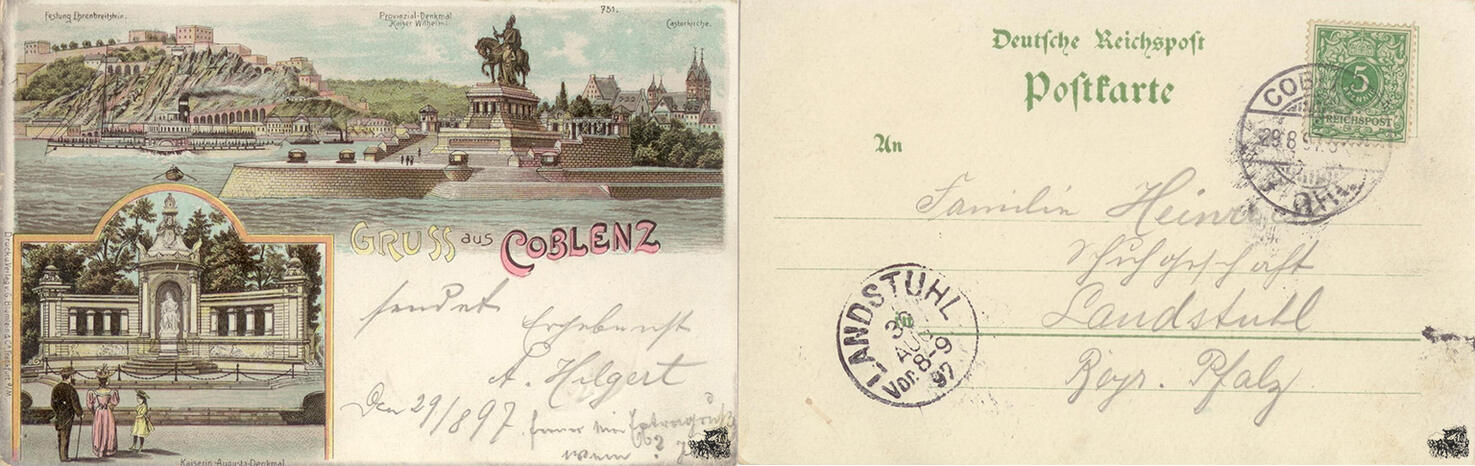 Festung Ehrenbreitstein.
Provinzial-Denkmal
Kaiser Wilhelm I
751.
Castorkirche.
GRUSS aus COBLENZ
sendet
Ergebenst
A. Hilgert
Den 29/8 97.
Kaiserin-Augusta-Denkmal
Druck u. Verlag v. G. Blümlein & Co. Frankfurt a/M.
Deutsche Reichspost
Postkarte
An
5
REICHSPOST
29.8.97
Familie
Schuhgeschäft
Landstuhl
Bayr. Pfalz
LANDSTUHL
30
AUG
Vor. 8-9
97